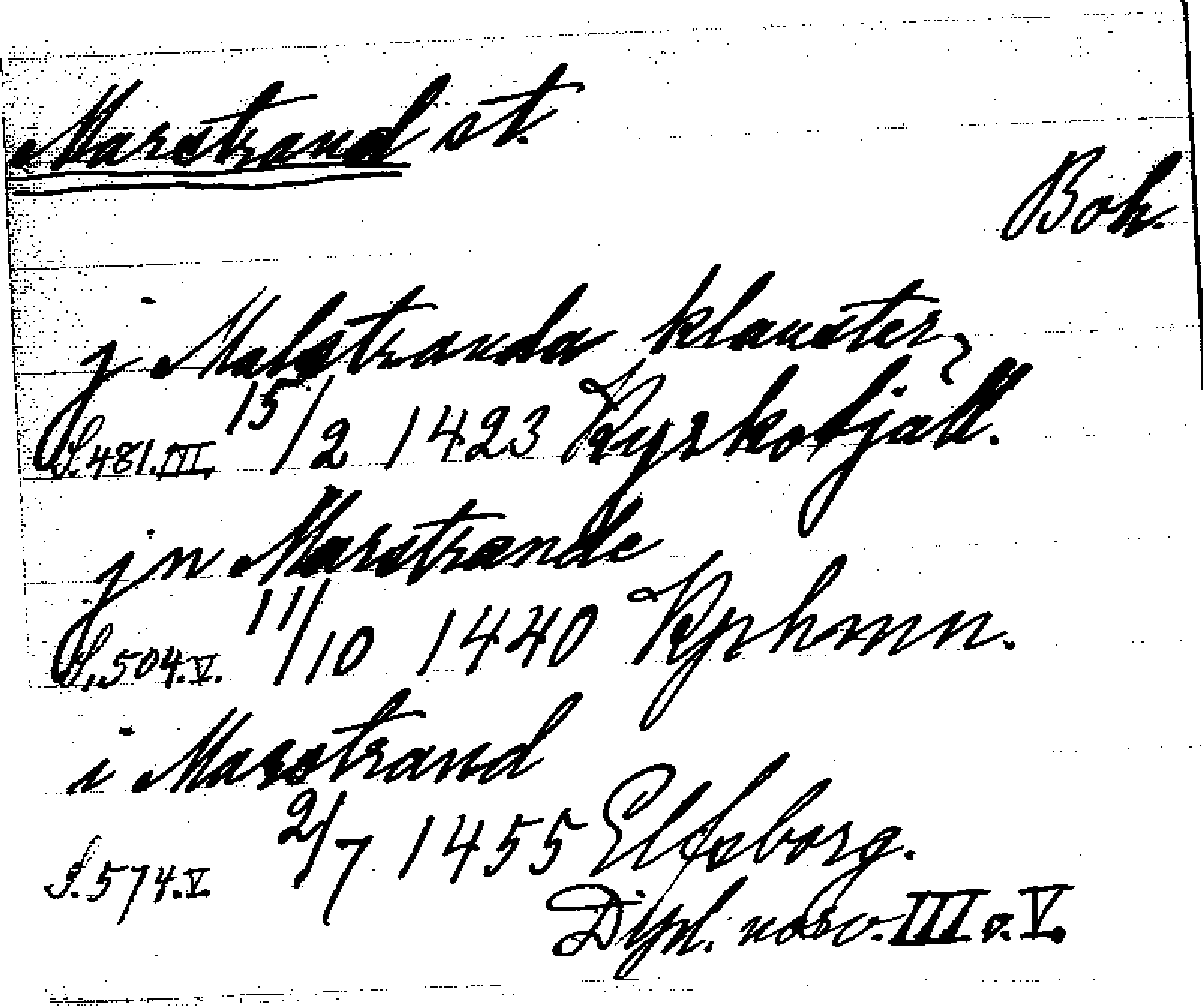 Marstrand st.
Boh.
j Malstranda klauster,
S. 481. III. 15/2 1423 Kyrkofjäll.
jn Marstrande
S. 504. V. 11/10 1440 Kphmn.
i Marstrand
S. 574. V. 2/7 1455 Elfsborg.
Dipl. norv. III o. V.